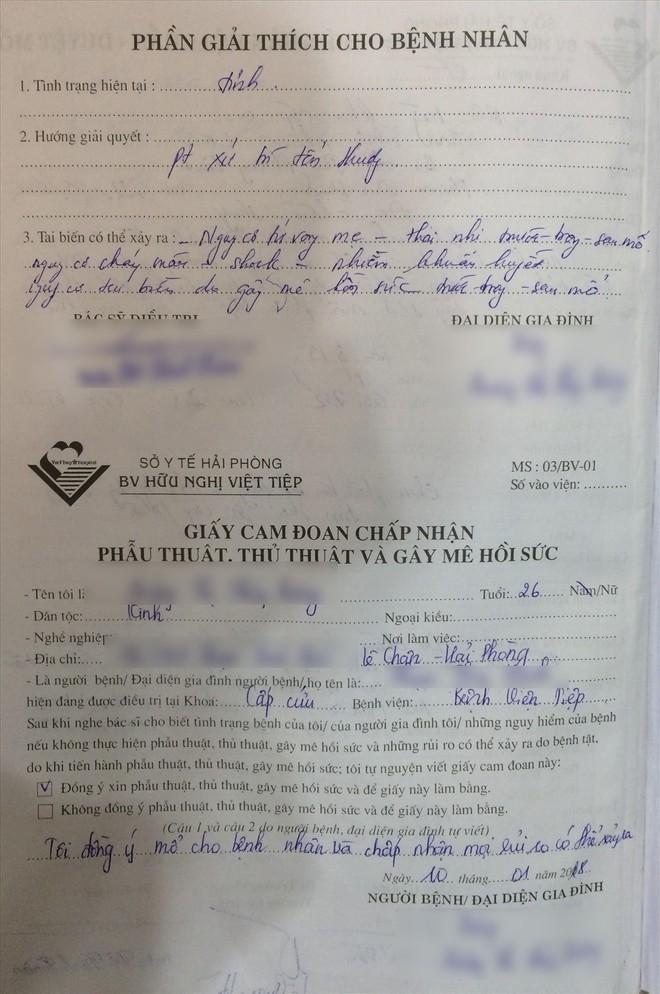 PHẦN GIẢI THÍCH CHO BỆNH NHÂN
1. Tình trạng hiện tại : tỉnh
2. Hướng giải quyết :
pt xử trí tổn thương
3. Tai biến có thể xảy ra : Nguy cơ tử vong mẹ - thai nhi trước - trong - sau mổ
nguy cơ chảy máu - shock - nhiễm khuẩn huyết
Nguy cơ tai biến do gây mê hồi sức trước - trong - sau mổ
BÁC SỸ ĐIỀU TRỊ ĐẠI DIỆN GIA ĐÌNH
SỞ Y TẾ HẢI PHÒNG
BV HỮU NGHỊ VIỆT TIỆP
MS : 03/BV-01
Số vào viện:
GIẤY CAM ĐOAN CHẤP NHẬN
PHẪU THUẬT, THỦ THUẬT VÀ GÂY MÊ HỒI SỨC
- Tên tôi là Tuổi: 26 Nam/Nữ
- Dân tộc: Kinh Ngoại kiều:
- Nghề nghiệp Nơi làm việc:
- Địa chỉ: Lê Chân - Hải Phòng
- Là người bệnh/ Đại diện gia đình người bệnh/,họ tên là:
hiện đang được điều trị tại Khoa: Cấp cứu Bệnh viện: Việt Tiệp
Sau khi nghe bác sĩ cho biết tình trạng bệnh của tôi/ của người gia đình tôi/ những nguy hiểm của bệnh
nếu không thực hiện phẫu thuật, thủ thuật, gây mê hồi sức và những rủi ro có thể xảy ra do bệnh tật,
do khi tiến hành phẫu thuật, thủ thuật, gây mê hồi sức; tôi tự nguyện viết giấy cam đoan này:
Đồng ý xin phẫu thuật, thủ thuật, gây mê hồi sức và để giấy này làm bằng.
Không đồng ý phẫu thuật, thủ thuật, gây mê hồi sức và để giấy này làm bằng.
(Câu 1 và câu 2 do người bệnh, đại diện gia đình tự viết)
Tôi đồng ý mổ cho bệnh nhân và chấp nhận mọi rủi ro có thể xảy ra
Ngày 10 tháng 01 năm 2018
NGƯỜI BỆNH/ ĐẠI DIỆN GIA ĐÌNH